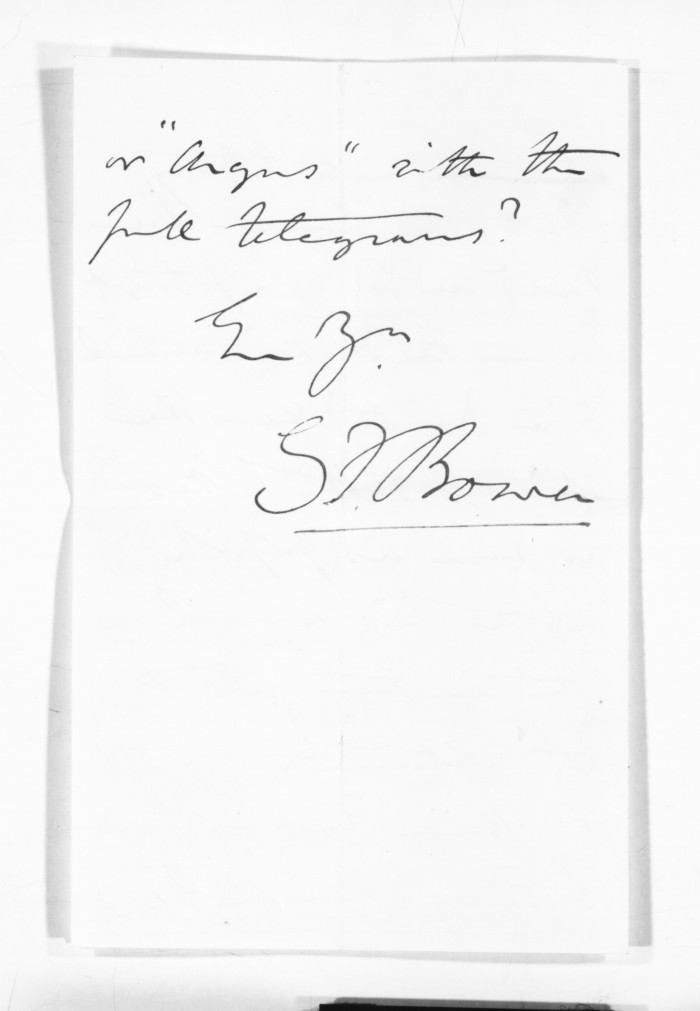 or "Argus" with the
full telegrams?
Ever Yrs.
G F Bowen